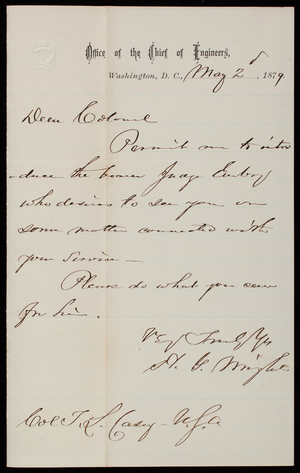 Office of the Chief of Engineers,
Washington, D. C., May 2d, 1879.
Dear Colonel
Permit me to intro
-duce the bearer Judge
who desires to see you on
some matter connected with
your Service—
Please do what you can
for him.
Very Truly Yrs
H. G. Wright
Col T. L. Casey